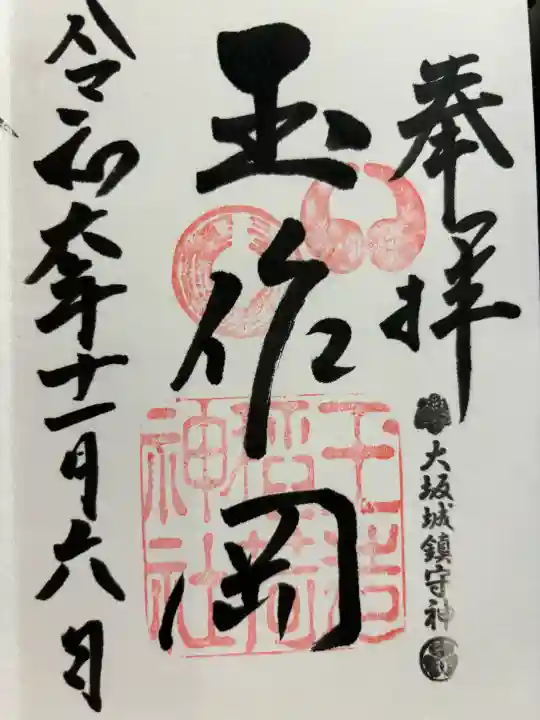 奉拝
大坂城鎮守神
玉作岡
玉造稲荷神社
令和六年十一月六日